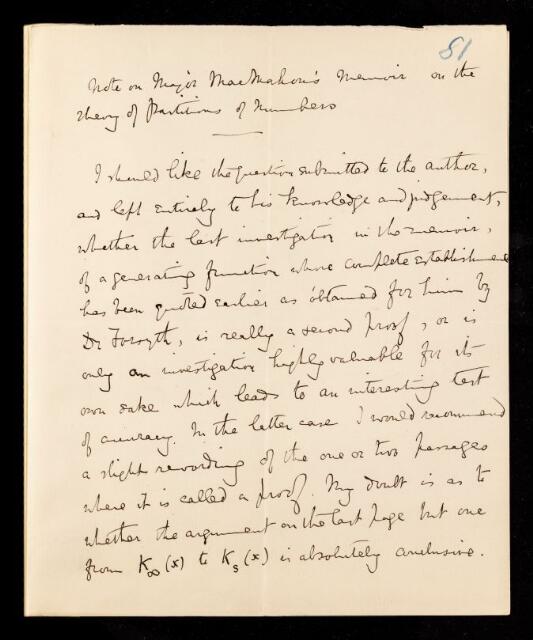 51
Note on Major MacMahon's Memoir on the
theory of Partitions of Numbers
I should like the question submitted to the author,
and left entirely to his knowledge and judgement,
whether the last investigation in the memoir,
of a generating function whose complete establishment
has been quoted earlier as obtained for him by
Dr Forsyth, is really a second proof, or is
only an investigation highly valuable for its
own sake which leads to an interesting test
of accuracy. In the latter case I would recommend
a slight rewording of the one or two passages
where it is called a proof. My doubt is as to
whether the argument on the last page but one
from K∞(x) to Ks(x) is absolutely conclusive.